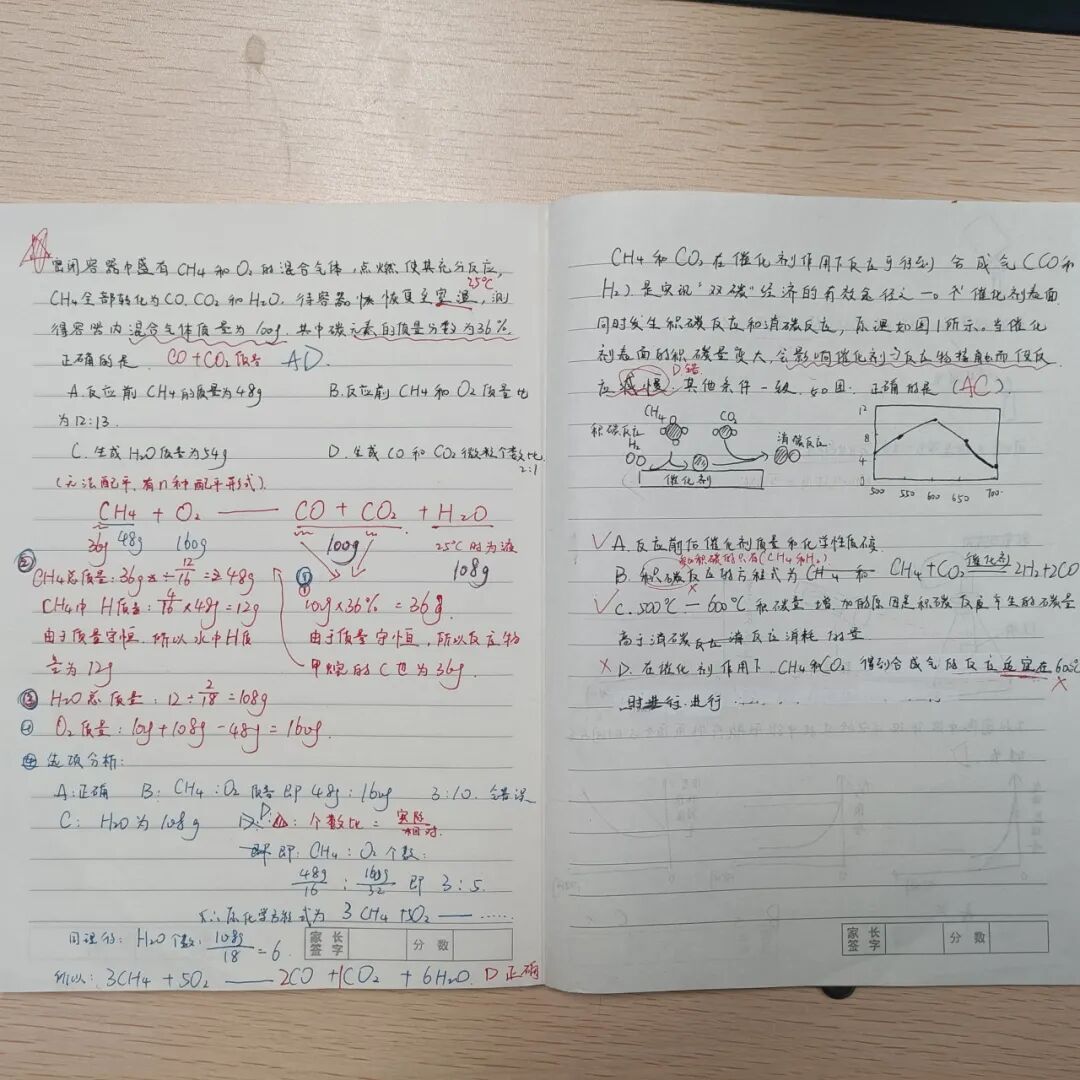 密闭容器中盛有CH4和O2的混合气体,点燃使其充分反应,
CH4全部转化为CO、CO2和H2O,待容器恢恢复至室温,测
25℃
得容器内混合气体质量为100g,其中碳元素的质量分数为36%.
正确的是 CO+CO2质量 AD.
A.反应前CH4的质量为48g B.反应前CH4和O2质量比
为12:13.
C.生成H2O质量为54g D.生成CO和CO2微粒个数比
2:1
(无法配平,有n种配平形式).
CH4 + O2 —— CO + CO2 + H2O
36g 48g 160g 100g 25℃时为液
108g
② CH4总质量:36g × ÷ 12/16 = 48g
CH4中H质量:4/16×48g=12g
由于质量守恒,所以水中H质
量为12g
① 100g×36%=36g
由于质量守恒,所以反应物
甲烷的C也为36g.
③ H2O总质量:12÷2/18=108g
④ O2质量:100g+108g-48g=160g.
选项分析:
A:正确 B:CH4:O2质量即48g:160g 3:10.错误
C:H2O为108g D: 个数比=实际/相对.
即:CH4:O2个数:
48g/16 : 160g/32 即 3:5.
∴原化学方程式为 3CH4+5O2 —— ……
同理得:H2O个数:108g/18=6.
所以:3CH4+5O2 —— 2CO+1CO2+6H2O. D正确
家长签字 分数
CH4和CO2在催化剂作用下反应可得到合成气(CO和
H2).是实现"双碳"经济的有效途径之一。 催化剂表面
同时发生积碳反应和消碳反应,原理如图1所示。当催化
剂表面的积碳量变大,会影响催化剂与反应物接触而使反
D错
应减慢.其他条件一级.如图. 正确的是(AC).
CH4 CO2
积碳反应 消碳反应
H2
催化剂
12
8
4
0
500 550 600 650 700
√A.反应前后催化剂质量和化学性质
积碳的只有(CH4和H2)
B.积碳反应的方程式为CH4和 CH4+CO2 催化剂 2H2+2CO
×
√C.500℃—600℃积碳量增加的原因是积碳反应产生的碳量
高于消碳反应消反应消耗的量.
×D.在催化剂作用下.CH4和CO2得到合成气的反应适宜在600℃
×
时进行.进行……
家长签字 分数